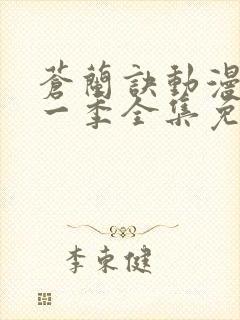 蒼蘭訣動漫
一季全集免
李東健